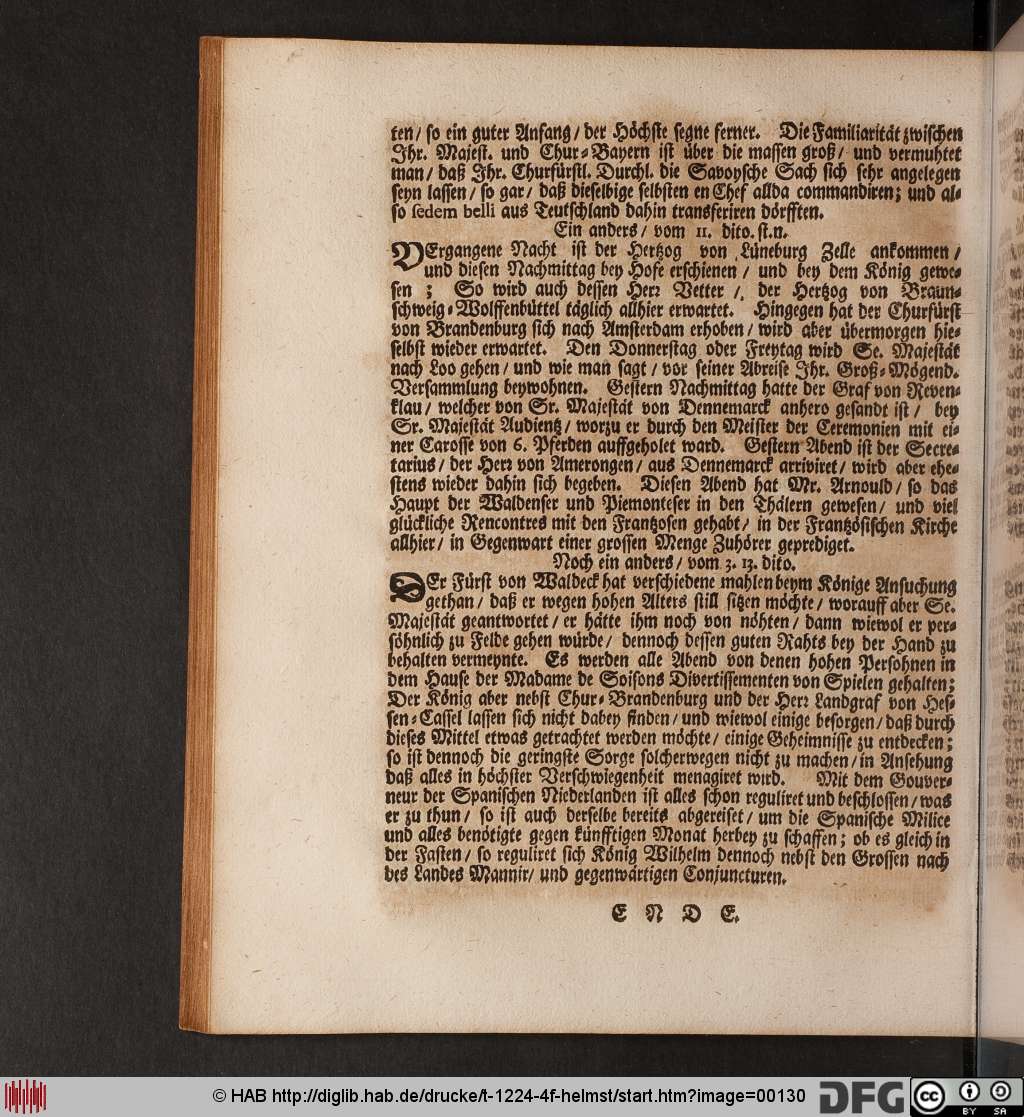 ten / so ein guter Anfang / der Höchste segne ferner. Die Familiarität zwischen
Ihr. Majest. und Chur-Bayern ist über die massen groß / und vermuhtet
man / daß Ihr. Churfürstl. Durchl. die Savoysche Sach sich sehr angelegen
seyn lassen / so gar / daß dieselbige selbsten en Chef allda commandiren; und al-
so sedem belli aus Teutschland dahin transferiren dörfften.
Ein anders / vom 11. dito. st.n.
VErgangene Nacht ist der Hertzog von Lüneburg Zelle ankommen /
und diesen Nachmittag bey Hofe erschienen / und bey dem König gewe-
sen ; So wird auch dessen Herr Vetter / der Hertzog von Braun-
schweig-Wolffenbüttel täglich allhier erwartet. Hingegen hat der Churfürst
von Brandenburg sich nach Amsterdam erhoben / wird aber übermorgen hie-
selbst wieder erwartet. Den Donnerstag oder Freytag wird Se. Majestät
nach Loo gehen / und wie man sagt / vor seiner Abreise Ihr. Groß-Mögend.
Versammlung beywohnen. Gestern Nachmittag hatte der Graf von Reven-
klau / welcher von Sr. Majestät von Dennemarck anhero gesandt ist / bey
Sr. Majestät Audientz / worzu er durch den Meister der Ceremonien mit ei-
ner Carosse von 6. Pferden auffgeholet ward. Gestern Abend ist der Secre-
tarius / der Herr von Amerongen / aus Dennemarck arriviret / wird aber ehe-
stens wieder dahin sich begeben. Diesen Abend hat Mr. Arnould / so das
Haupt der Waldenser und Piemonteser in den Thälern gewesen / und viel
glückliche Rencontres mit den Frantzosen gehabt / in der Frantzösischen Kirche
allhier / in Gegenwart einer grossen Menge Zuhörer geprediget.
Noch ein anders / vom 3. 13. dito.
DEr Fürst von Waldeck hat verschiedene mahlen beym Könige Ansuchung
gethan / daß er wegen hohen Alters still sitzen möchte / worauff aber Se.
Majestät geantwortet / er hätte ihm noch von nöhten / dann wiewol er per-
söhnlich zu Felde gehen würde / dennoch dessen guten Rahts bey der Hand zu
behalten vermeynte. Es werden alle Abend von denen hohen Persohnen in
dem Hause der Madame de Soisons Divertissementen von Spielen gehalten;
Der König aber nebst Chur-Brandenburg und der Herr Landgraf von Hes-
sen-Cassel lassen sich nicht dabey finden / und wiewol einige besorgen / daß durch
dieses Mittel etwas getrachtet werden möchte / einige Geheimnisse zu entdecken;
so ist dennoch die geringste Sorge solcherwegen nicht zu machen / in Ansehung
daß alles in höchster Verschwiegenheit menagiret wird. Mit dem Gouver-
neur der Spanischen Niederlanden ist alles schon reguliret und beschlossen / was
er zu thun / so ist auch derselbe bereits abgereiset / um die Spanische Milice
und alles benötigte gegen künfftigen Monat herbey zu schaffen; ob es gleich in
der Fasten / so reguliret sich König Wilhelm dennoch nebst den Grossen nach
des Landes Mannir / und gegenwärtigen Conjuncturen.
E N D E.
© HAB http://diglib.hab.de/drucke/t-1224-4f-helmst/start.htm?image=00130
DFG
cc
BY SA